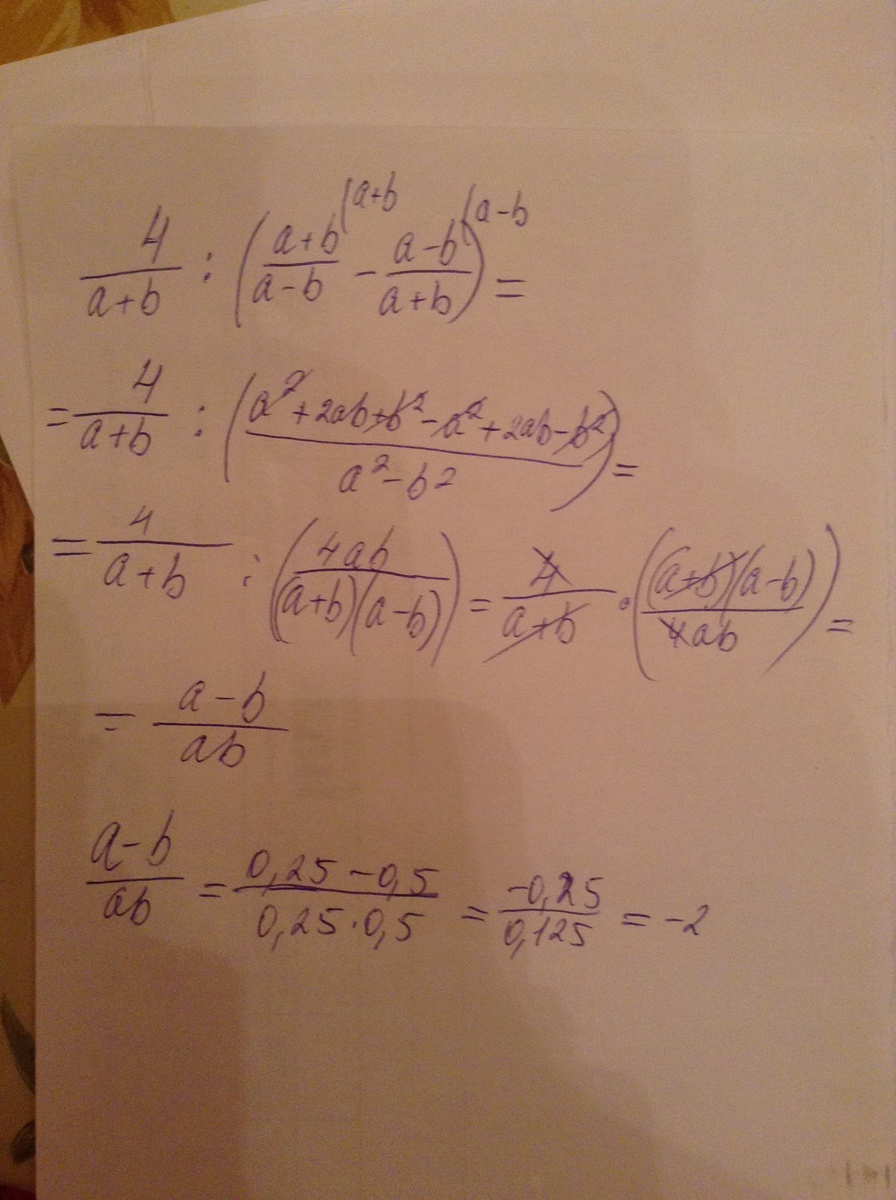 4/(a+b) : ((a+b)/(a-b) - (a-b)/(a+b)) = (a+b (a-b
= 4/(a+b) : ((a²+2ab+b²-a²+2ab-b²)/(a²-b²)) =
= 4/(a+b) : (4ab/((a+b)(a-b))) = 4/(a+b) · ((a+b)(a-b)/4ab) =
= (a-b)/ab
(a-b)/ab = (0,25-0,5)/(0,25·0,5) = -0,25/0,125 = -2